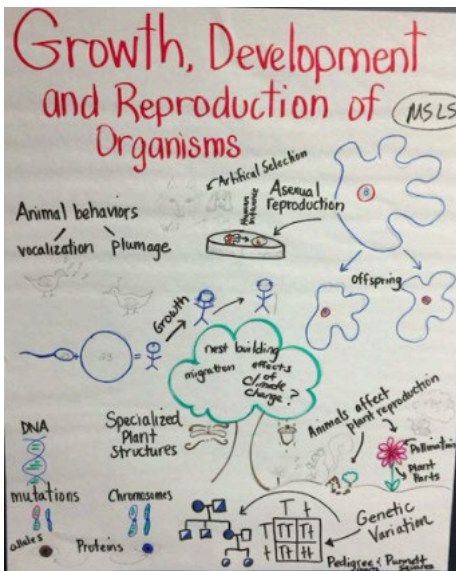 Growth, Development
and Reproduction of
Organisms
MSLS
Artifical Selection
Human
Influence
Asexual
reproduction
8
Animal behaviors
vocalization plumage
Offspring
8
8
Growth
23
=
nest building
migration effects
of
climate
change?
Animals affect
plant reproduction
Specialized
Plant
Structures
Pollination
Plant
Parts
DNA
mutations
Chromosomes
alleles
Proteins
T t
T TT Tt
t Tt tt
Genetic
Variation
Pedigree & Punnett
Squares